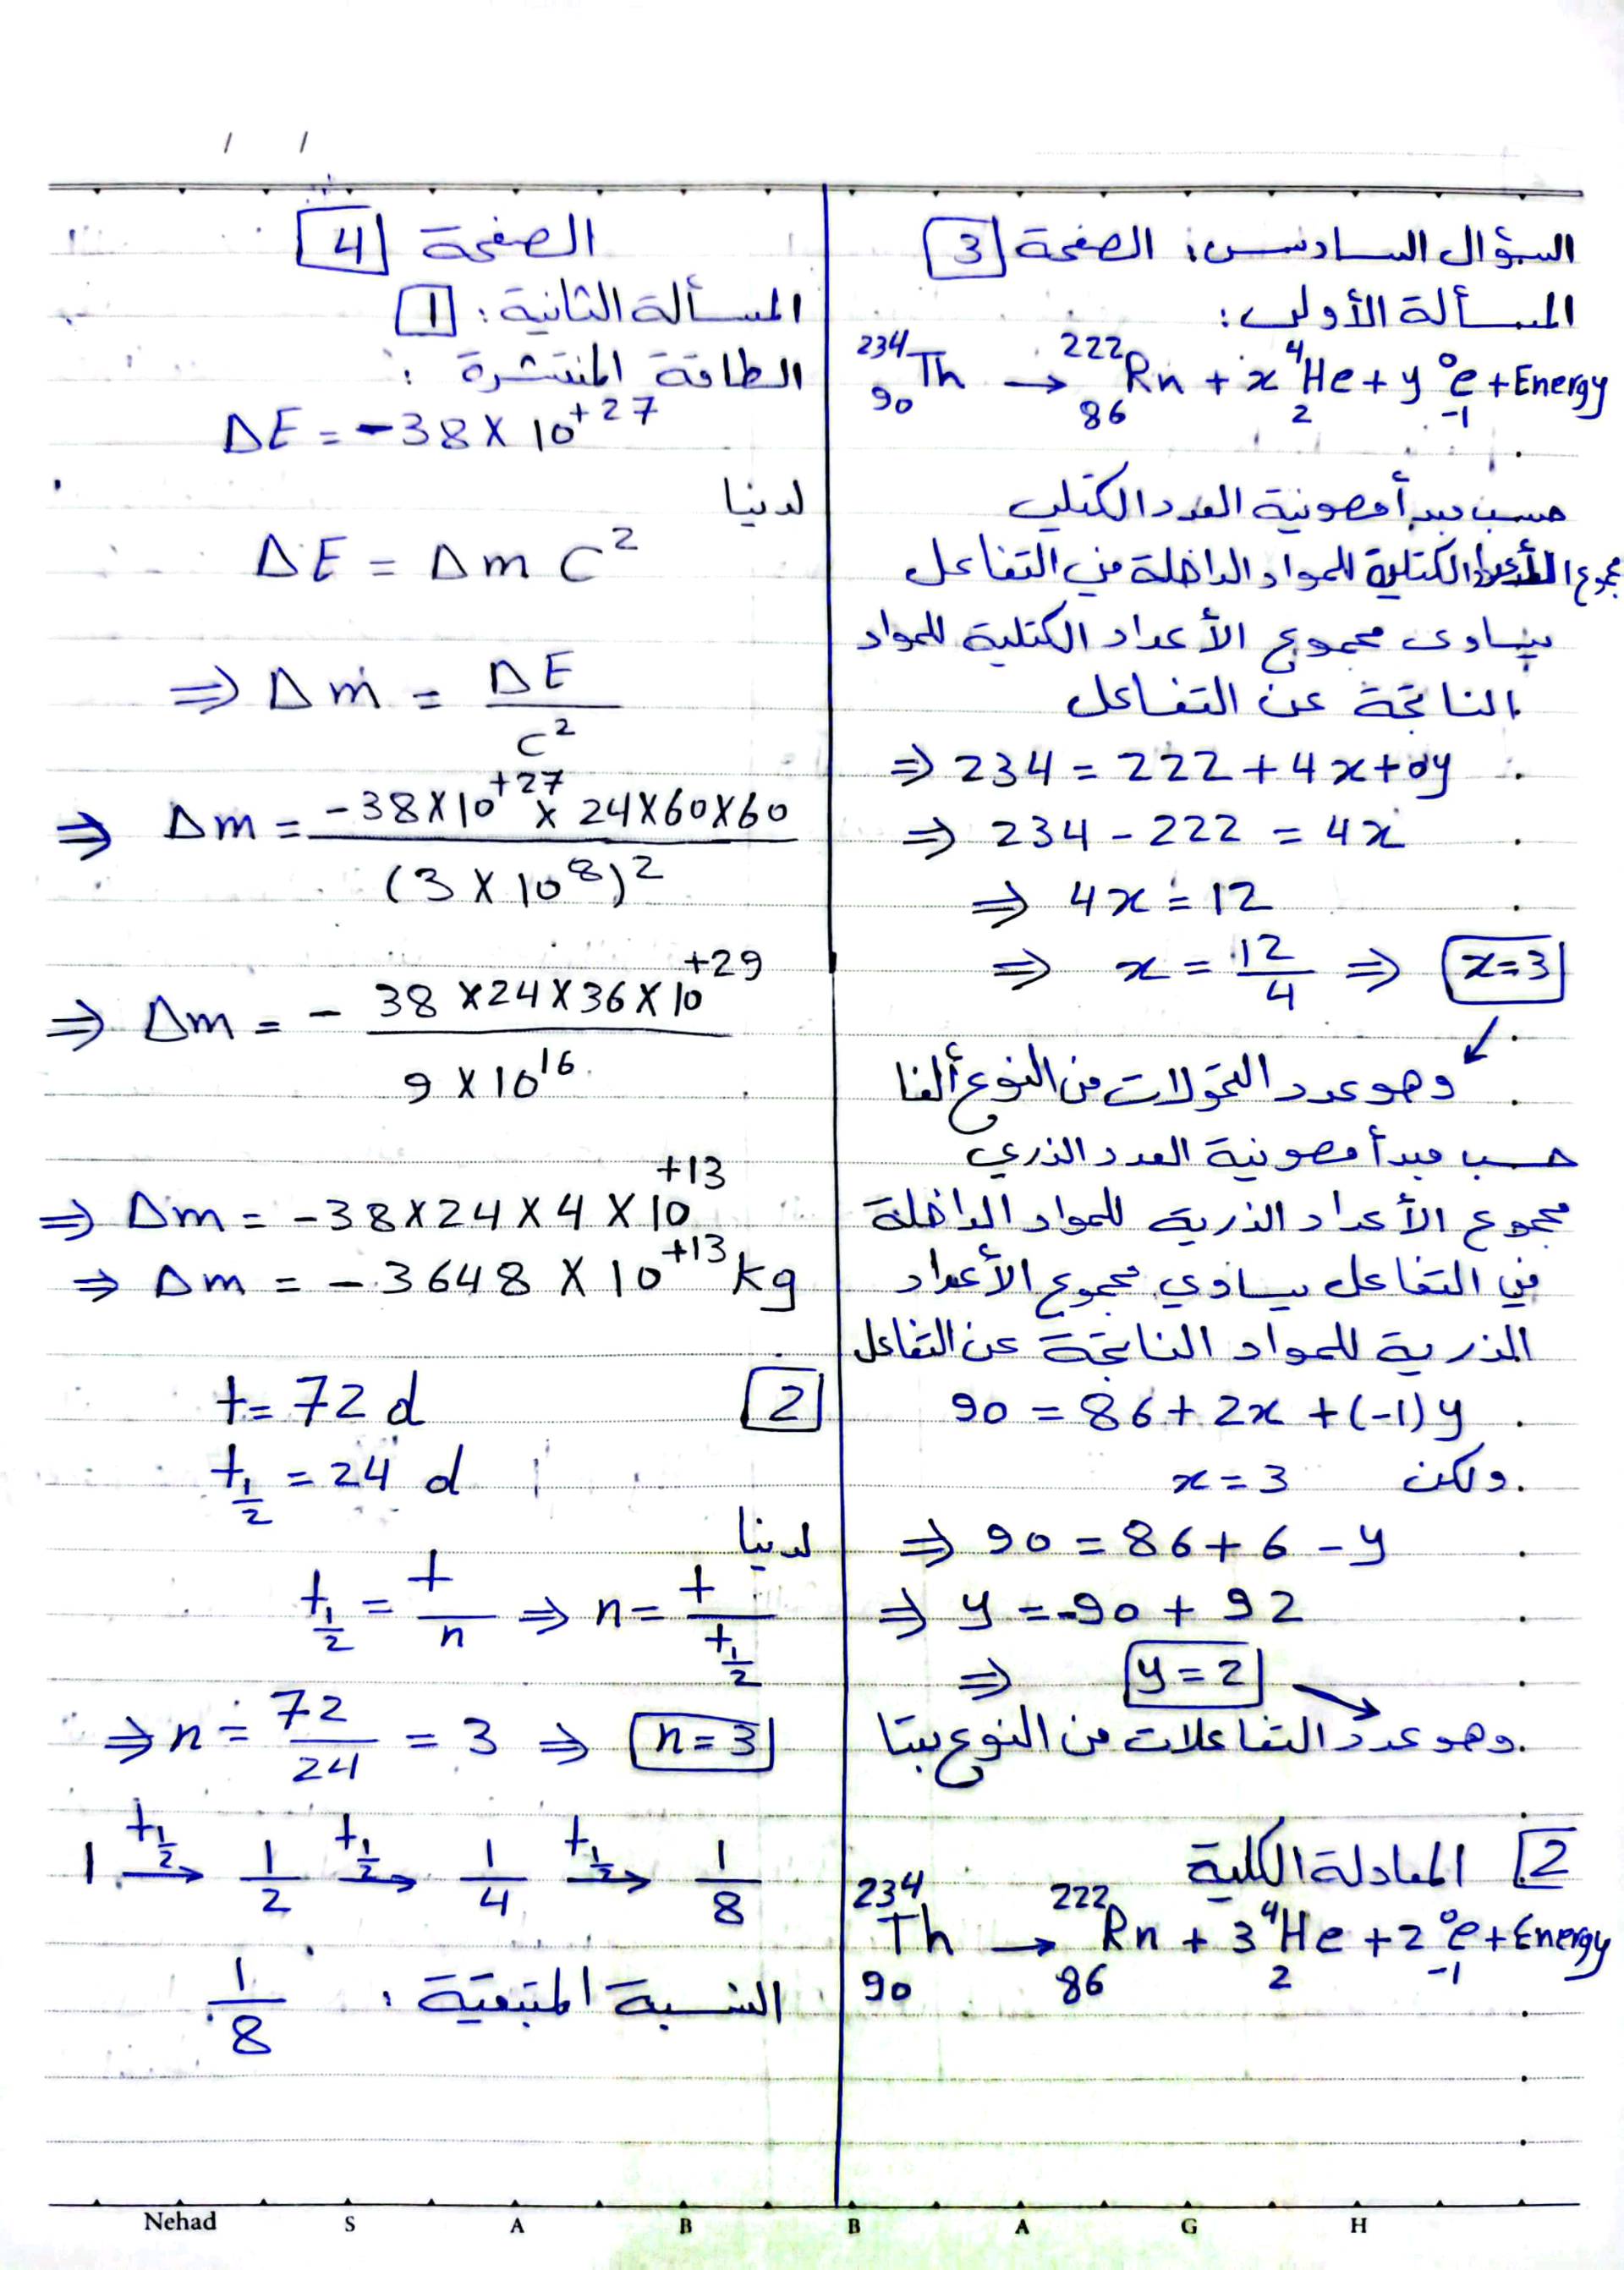 السؤال السادس: الصفحة 3
المسألة الأولى:
²³⁴₉₀Th → ²²²₈₆Rn + x ⁴₂He + y ⁰₋₁e + Energy
حسب مبدأ مصونية العدد الكتلي
مجموع الأعداد الكتلية للمواد الداخلة في التفاعل
يساوي مجموع الأعداد الكتلية للمواد
الناتجة عن التفاعل
⇒ 234 = 222 + 4x + 0y
⇒ 234 - 222 = 4x
⇒ 4x = 12
⇒ x = 12/4 ⇒ x=3
وهو عدد التحولات من النوع ألفا
حسب مبدأ مصونية العدد الذري
مجموع الأعداد الذرية للمواد الداخلة
في التفاعل يساوي مجموع الأعداد
الذرية للمواد الناتجة عن التفاعل
90 = 86 + 2x + (-1)y
ولكن x = 3
⇒ 90 = 86 + 6 - y
⇒ y = -90 + 92
⇒ y = 2
وهو عدد التفاعلات من النوع بيتا
2 المعادلة الكلية
²³⁴₉₀Th → ²²²₈₆Rn + 3 ⁴₂He + 2 ⁰₋₁e + Energy
الصفحة 4
المسألة الثانية: 1
الطاقة المنتشرة:
ΔE = -38 × 10⁺²⁷
لدينا
ΔE = Δm c²
⇒ Δm = ΔE/c²
⇒ Δm = -38×10⁺²⁷ × 24×60×60 / (3 × 10⁸)²
⇒ Δm = - 38 ×24×36×10⁺²⁹ / 9 × 10¹⁶
⇒ Δm = -38×24×4×10⁺¹³
⇒ Δm = -3648 × 10⁺¹³ kg
2 t = 72 d
t½ = 24 d
لدينا
t½ = t/n ⇒ n = t/t½
⇒ n = 72/24 = 3 ⇒ n=3
1 →(t½) 1/2 →(t½) 1/4 →(t½) 1/8
النسبة المتبقية: 1/8
Nehad S A B B A G H